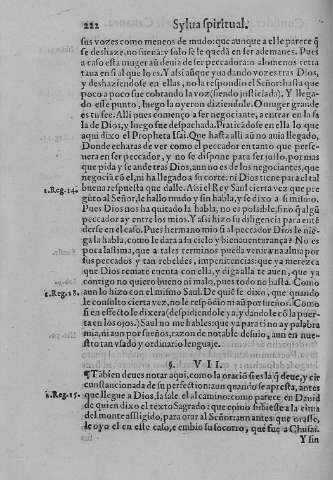 222 Sylua spiritual.
sus vozes como meneos de mudo: que aunque a elle parece q̃
se deshaze, no suena: y solo se le queda en ser ademanes. Pues
a caso esta muger auñ denia de ser peccadora o alomenos retra
taua en si al que lo es. Y assi aũque yua dando vozes tras Dios,
y deshaziendose en ellas, no la respondio el Señor hasta que
poco a poco fue cobrando la voz (siendo justiciada), Y llega-
do esse punto, luego la oyeron diziendole. O muger grande
es tu fee. Alli pues começo a ser negociante, a entrar en la sa
la de Dios, y luego fue despachada. Praticãdose en ella lo que
aqui dixo el Propheta Isai. Que hasta alli aũ no auia llegado.
Donde echaras de ver como el peccador en tanto que perse-
uera en ser peccador, y no se dispone para ser justo, por mas
que pida y se ande tras Dios, aun no es de los negociantes, que
negocia cõ el, ni ha llegado a su corte: ni Dios trae para el tal
1.Reg.14. buena respuesta que dalle. Assi el Rey Saul cierta vez que pre
gũto al Señor, le hallo mudo y sin habla, y se dixo a si mismo.
Pues Dios nos ha quitado la habla, no es possible, sino q̃ algũ
peccador ay entre los mios. Y assi hizo su diligencia para entẽ
derse en el caso. Pues hermano mio si al peccador Dios le nie-
ga la habla, como le dara a su cielo y bienauenturança? No es
poca lastima, que a tales terminos pueda venir vna alma por
sus peccados y tan rebeldes, impenitencias: que ya merezca
que Dios remate cuenta con ella, y diga alla te auen, que ya
contigo no quiero bueno ni malo, pues todo no basta. Como
1.Reg.28. aun lo hizo con el mismo Saul. De quiẽ se dixo, que quando
le consulto cierta vez, no le respõdio ni aũ por sueños. Como
si en effecto le dixera (despidiendole ya, y dandole cõ la puer-
ta en los ojos.) Saul no me hables: que ya para ti no ay palabra
mia, ni aun por sueños, razon de notable desuio, aun en nue-
stro tan vsado y ordinario lenguaje.
§. VII.
¶ Tãbien deues notar aqui, como la oraciõ si es la q̃ deue, y cir
cunstancionada de su perfection: aun quando se apresta, antes
que llegue a Dios, la sale el al camino: como parece en Dauid
2.Reg.15. de quien dixo el texto Sagrado: que como subiesse a la cima
del monte affligido, para orar al Señor: aun antes que orasse,
le oyo el en esse caso, e embio su socorro, que fue a Chusai.
Y sin